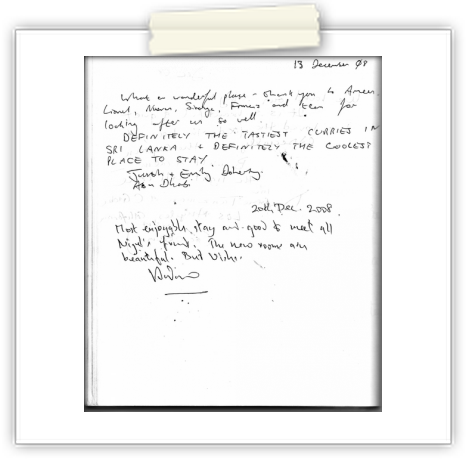 13 December 08
What a wonderful place - thank you to
Lionel, and team for
looking after us so well.
DEFINITELY THE TASTIEST CURRIES IN
SRI LANKA + DEFINITELY THE COOLEST
PLACE TO STAY.
+ Emily Doherty.
Abu Dhabi
20th Dec. 2008.
Most enjoyable stay and good to meet all
Nigel's friend. The new rooms are
beautiful. Best Wishes.